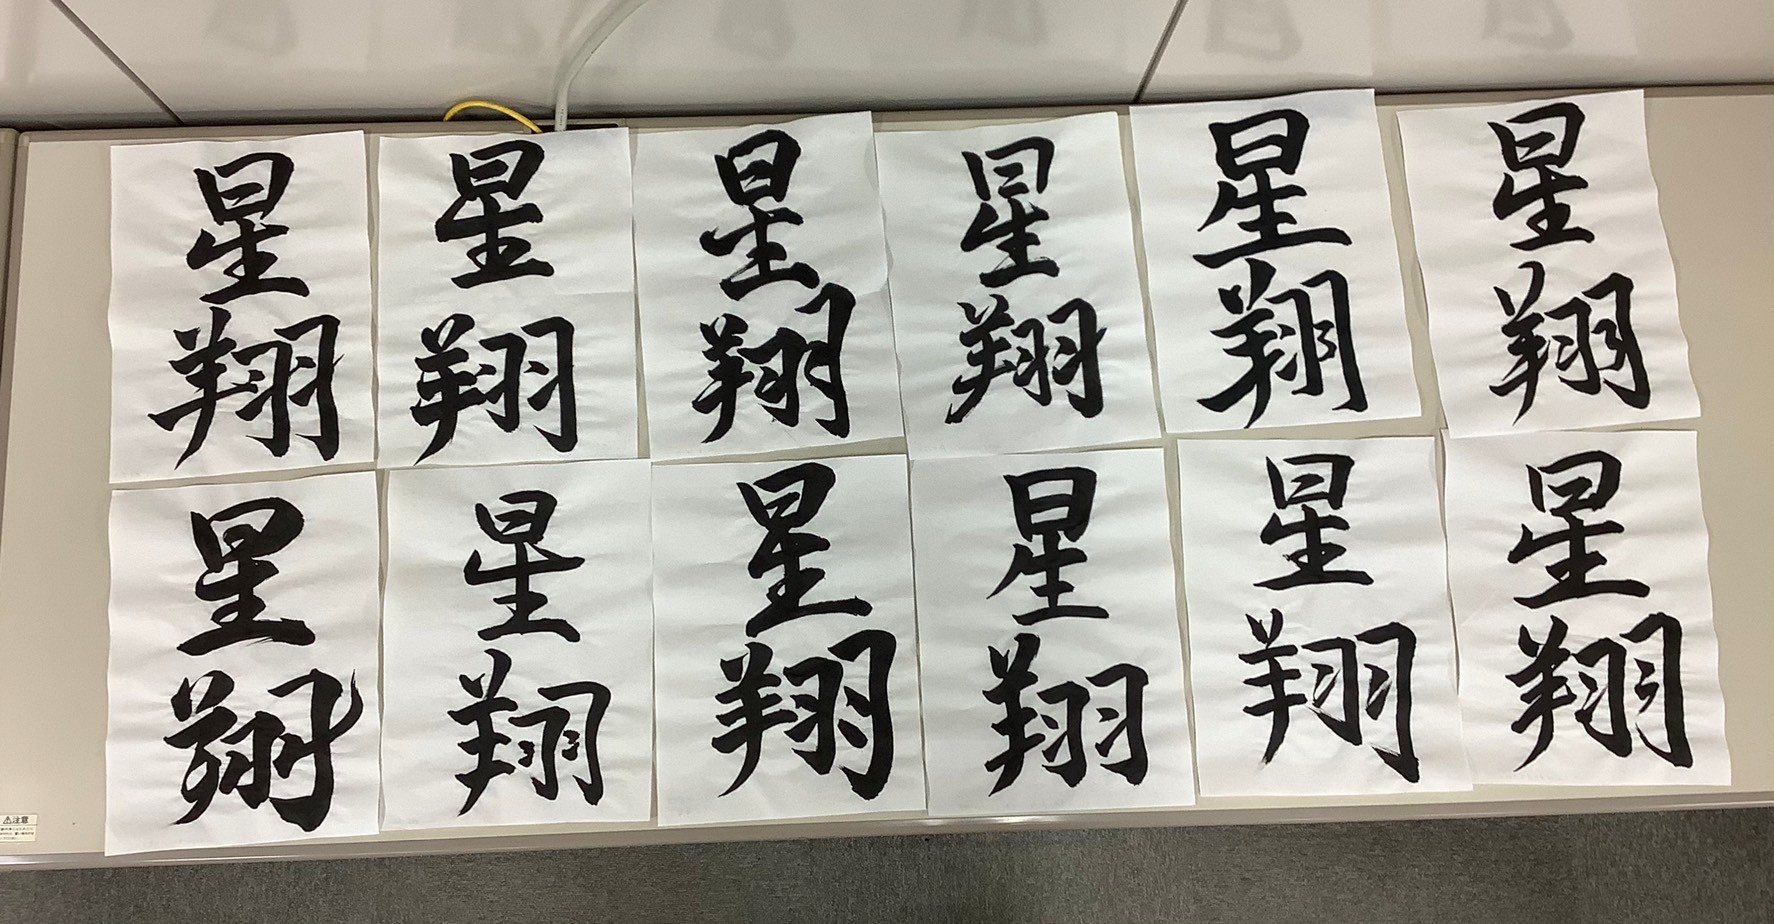 星翔
星翔
星翔
星翔
星翔
星翔
星翔
星翔
星翔
星翔
星翔
星翔
⚠注意